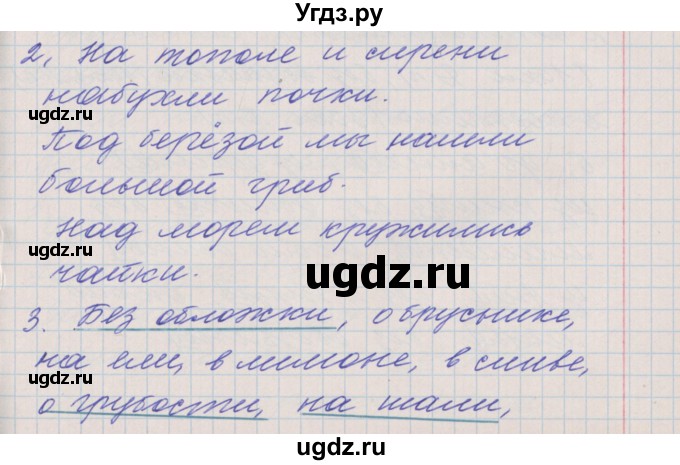 Угдз.ру
2. На тополе и сирени
набухли почки.
ugdz.ru
ugdz.ru
Под берёзой мы нашли
большой гриб.
Над морем кружились
чайки.
ugdz.ru
3. Без обложки, о бруснике,
ugdz.ru
на ели, в лимоне, в сливе,
о грубости, на шали,
ugdz.ru
ugdz.ru